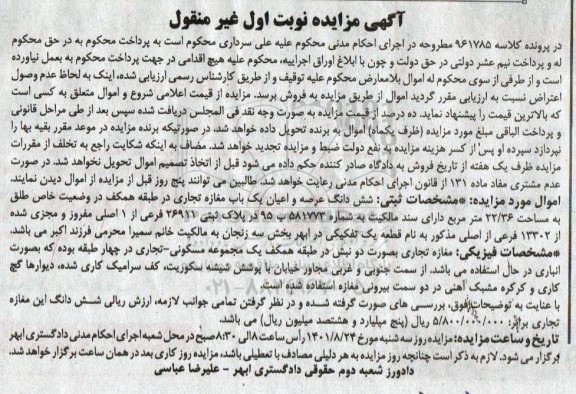 آگهی مزایده نوبت اول غیر منقول
در پرونده کلاسه ۹۶۱۷۸۵ مطروحه در اجرای احکام مدنی محکوم علیه علی سرداری محکوم است به پرداخت محکوم به در حق محکوم
له و پرداخت نیم عشر دولتی در حق دولت و چون با ابلاغ اوراق اجراییه، محکوم علیه هیچ اقدامی در جهت پرداخت محکوم به بعمل نیاورده
است و از طرفی از سوی محکوم له اموال بلامعارض محکوم علیه توقیف و از طریق کارشناس رسمی ارزیابی شده، اینک به لحاظ عدم وصول
اعتراض نسبت به ارزیابی مقرر گردید اموال از طریق مزایده به فروش برسد. مزایده از قیمت اعلامی شروع و اموال متعلق به کسی است
که بالاترین قیمت را پیشنهاد نماید. ده درصد از قیمت مزایده به صورت وجه نقد فی المجلس دریافت شده سپس بعد از طی مراحل قانونی
و پرداخت الباقی مبلغ مورد مزایده (ظرف یکماه) اموال به برنده تحویل داده خواهد شد، در صورتیکه برنده مزایده در موعد مقرر بقیه بها را
نپردازد سپرده او پس از کسر هزینه مزایده به نفع دولت ضبط و مزایده تجدید خواهد شد. مضاف به اینکه شکایت راجع به تخلف از مقررات
مزایده ظرف یک هفته از تاریخ فروش به دادگاه صادر کننده حکم داده می شود قبل از اتخاذ تصمیم اموال تحویل نخواهد شد. در صورت
عدم مشتری مفاد ماده ۱۳۱ از قانون اجرای احکام مدنی رعایت خواهد شد. طالبین می توانند پنج روز قبل از مزایده از اموال دیدن نمایند.
اموال مورد مزایده: *مشخصات ثبتی: شش دانگ عرصه و اعیان یک باب مغازه تجاری در طبقه همکف در وضعیت خاص طلق
به مساحت ۲۲/۳۶ متر مربع دارای سند مالکیت به شماره ۵۸۱۷۷۳ ب ۹۵ در پلاک ثبتی ۲۶۹۱۱ فرعی از ۱ اصلی مفروز و مجزی شده
از ۱۳۳۰۲ فرعی از اصلی مذکور به نام قطعه یک تفکیکی در ابهر بخش سه زنجان به مالکیت خانم سمیرا محرمی فرزند اکبر می باشد.
*مشخصات فیزیکی: مغازه تجاری بصورت دو نبش در طبقه همکف یک مجموعه مسکونی-تجاری در چهار طبقه بوده که بصورت
انباری در حال استفاده می باشد. از سمت جنوبی و غربی مجاور خیابان با پوشش شیشه سکوریت، کف سرامیک کاری شده، دیوارها گچ
کاری و کرکره مشبک آهنی در دو سمت بیرونی مغازه استفاده شده است.
با عنایت به توضیحات فوق، بررسی های صورت گرفته شده و در نظر گرفتن تمامی جوانب لازمه، ارزش ریالی شش دانگ این مغازه
تجاری برابر ۵/۸۰۰/۰۰۰/۰۰۰ ریال (پنج میلیارد و هشتصد میلیون ریال) می باشد.
تاریخ و ساعت مزایده: مزایده روز سه شنبه مورخ ۱۴۰۱/۸/۲۴ رأس ساعت ۸ الی ۸:۳۰ صبح در محل شعبه اجرای احکام مدنی دادگستری ابهر
برگزار می شود. لازم به ذکر است چنانچه روز مزایده به هر دلیلی مصادف با تعطیلی باشد، مزایده روز کاری بعد در همان ساعت برگزار خواهد شد.
دادورز شعبه دوم حقوقی دادگستری ابهر - علیرضا عباسی